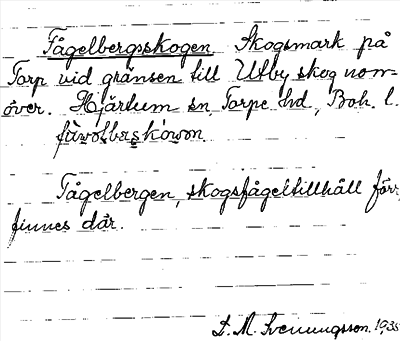 Fågelbergsskogen. Skogsmark på
Torp vid gränsen till Utby skog nom-
över. Hjärtum sn, Torpe hd, Boh. l.
Fågelbergen, skogsfågeltillhåll förr,
finnes där.
D. M. Svenungsson. 1935